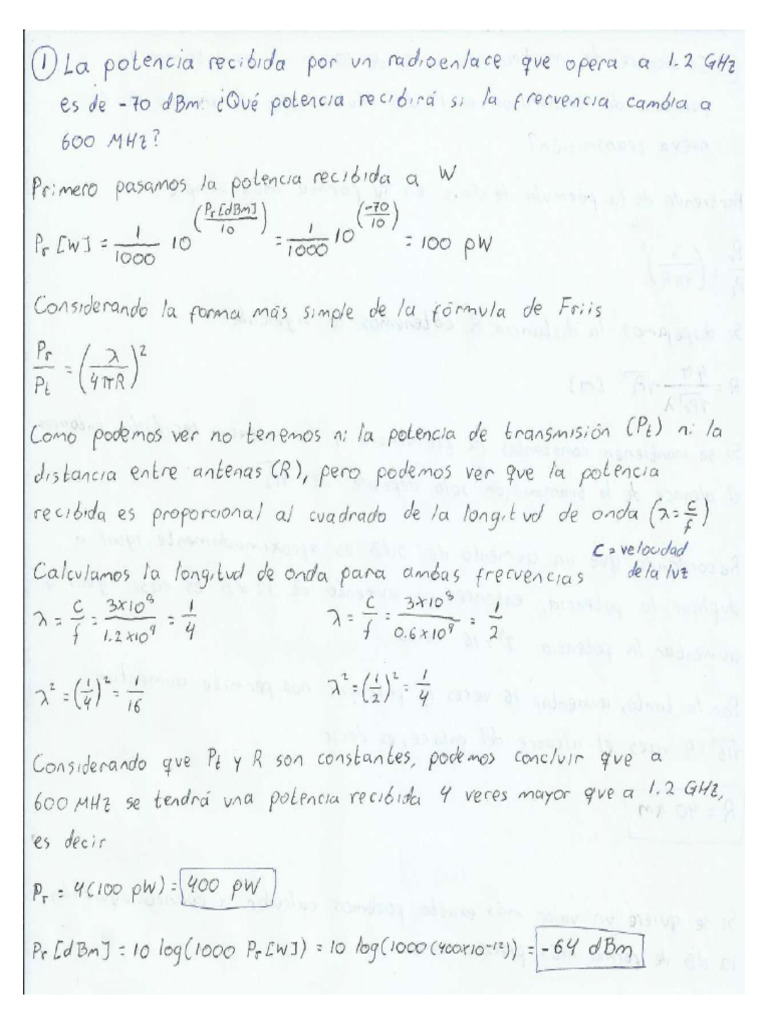 ① La potencia recibida por un radioenlace que opera a 1.2 GHz
es de -70 dBm. ¿Qué potencia recibirá si la frecuencia cambia a
600 MHz?
Primero pasamos la potencia recibida a W
Pr [W] = 1/1000 10^(Pr[dBm]/10) = 1/1000 10^(-70/10) = 100 pW
Considerando la forma más simple de la fórmula de Friis
Pr/Pt = (λ/4πR)²
Como podemos ver no tenemos ni la potencia de transmisión (Pt) ni la
distancia entre antenas (R), pero podemos ver que la potencia
recibida es proporcional al cuadrado de la longitud de onda (λ = c/f)
C = velocidad
de la luz
Calculamos la longitud de onda para ambas frecuencias
λ = C/f = 3x10⁸/1.2x10⁹ = 1/4 λ = C/f = 3x10⁸/0.6x10⁹ = 1/2
λ² = (1/4)² = 1/16 λ² = (1/2)² = 1/4
Considerando que Pt y R son constantes, podemos concluir que a
600 MHz se tendrá una potencia recibida 4 veces mayor que a 1.2 GHz,
es decir
Pr = 4(100 pW) = 400 pW
Pr [dBm] = 10 log(1000 Pr [W]) = 10 log(1000(400x10⁻¹²)) = -64 dBm